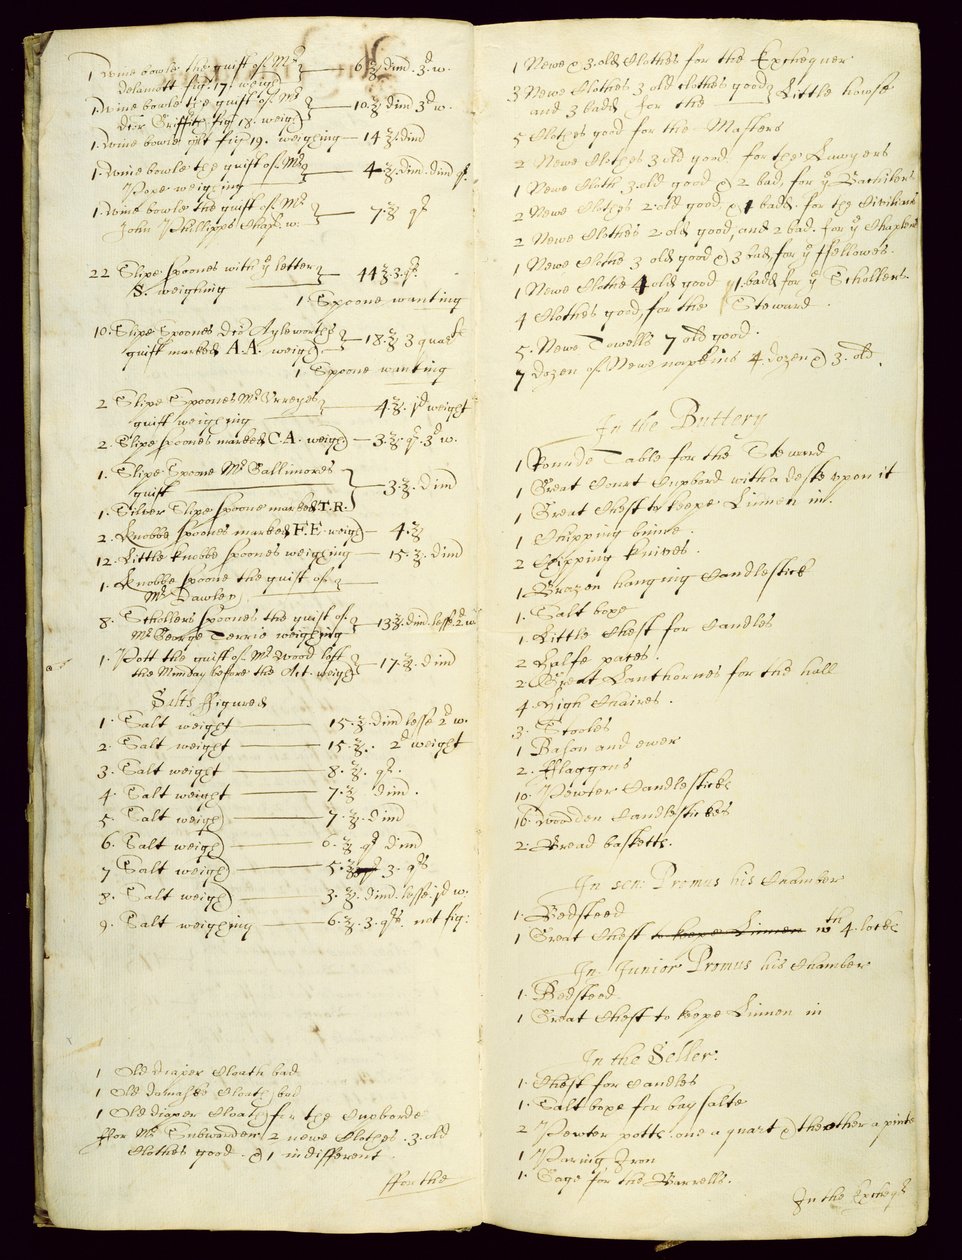 1 Wine bowle the guift of Mr
delamott fig. 17. weigh
6 ℥ dim. 3d. w.
1. Wine bowle the guift of Mr
Dcor Griffith fig 18. weigh
10. ℥ dim 3d w.
1. Wine bowle gilt fig 19. weighing 14 ℥ dim
1. Wine bowle the guift of Mr
Pope weighing
4 ℥. dim. dim qr.
1. Wine bowle the guift of Mr
John Phillipps Chapl. w.
7. ℥ qr
22 Slipe spoones with ye letter
S. weighing
44 ℥ 3. qr.
1 Spoone wanting
10. Slipe Spoones Dcor Ayleworthes
guift marked A.A. weigh.
18. ℥ 3 quart
1 Spoone wanting
2 Slipe Spoones Mr Verreyes
guift weighing
4. ℥. jd weight
2. Slipe spoones marked C.A. weigh. 3. ℥ qr. 3d w.
1. Slipe Spoone Mr Gallimores
guift
1. Silver Slipe spoone marked T.R.
3. ℥. dim
2. Knobbe spoones marked F.E. weigh 4. ℥
12. Little knobbe spoones weighing 15. ℥. dim
1. Knobbe spoone the guift of
Mr Dawley
8. Schollers spoones the guift of
Mr George Terrie weighing
13 ℥. dim. lesse. 2d. w
1. Pott the guift of Mr Wood left
the Munday before the Act. weigh
17. ℥. dim
Salts ffigured
1. Salt weight 15. ℥. dim lesse 2d. w.
2. Salt weight 15. ℥. 2d weight
3. Salt weight 8. ℥. qr.
4. Salt weight 7. ℥ dim.
5. Salt weigh 7. ℥. dim
6. Salt weigh 6. ℥ qr dim
7 Salt weigh 5. ℥ 3. qrs
8. Salt weigh 3. ℥. dim. lesse. jd w.
9. Salt weighing 6. ℥. 3. qrs. not fig:
1 Old diaper Cloath bad
1 Old damaske Cloath bad
1 Old diaper Cloath for the Cupborde
ffor Mr Subwarden 2 newe Clothes. 3. old
Clothes good. & 1 indifferent.
ffor the
1 Newe & 3. old Clothes for the Exchequer
3 Newe Clothes 3 old clothes good
and 3 badd for the
Little house
5 Clothes good for the Masters
2 Newe Clothes 3 old good, for the Lawyers
1 Newe Cloth 3. old good & 2 bad, for ye Bachilers
2 Newe Clothes 2. old good & 1 badd. for the Civilians
2 Newe Clothes 2 old good, and 2 bad. for ye Chaplens
1 Newe Clothe 3 old good & 3 bad, for ye ffellowes.
1 Newe Clothe 4 old good & 1. badd, for ye Schollers.
4 Clothes good, for the Steward.
5. Newe Towells 7 old good.
7 dozen of Newe napkins 4. dozen & 3. old.
In the Buttery
1 Rounde Table for the Steward
1 Great Court Cupbord with a deske upon it
1 Great Chest to keepe Linnen in.
1 Chipping knive.
2 Chipping knives.
1. Brazen hanging Candlestick
1. Salt boxe
1. Little Chest for Candles
2 Halfe pates.
2. Great Lanthornes for the hall
4. High Chaires.
3. Stooles
1 Bason and ewer
2. fflaggons
10. Pewter Candlesticks
16. Wooden Candlestickes
2. Bread basketts.
In sen: Promus his Chamber
1. Bedsteed
1 Great Chest to keepe Linnen wth 4. locks
In Junior Promus his Chamber
1. Bedsteed
1 Great Chest to keepe Linnen in
In the Seller.
1. Chest for Candles
1. Salt boxe for bay salte
2 Pewter potts. one a quart & the other a pinte
1 Paring Iron
1. Gage for the Barrells.
In the Excheqr